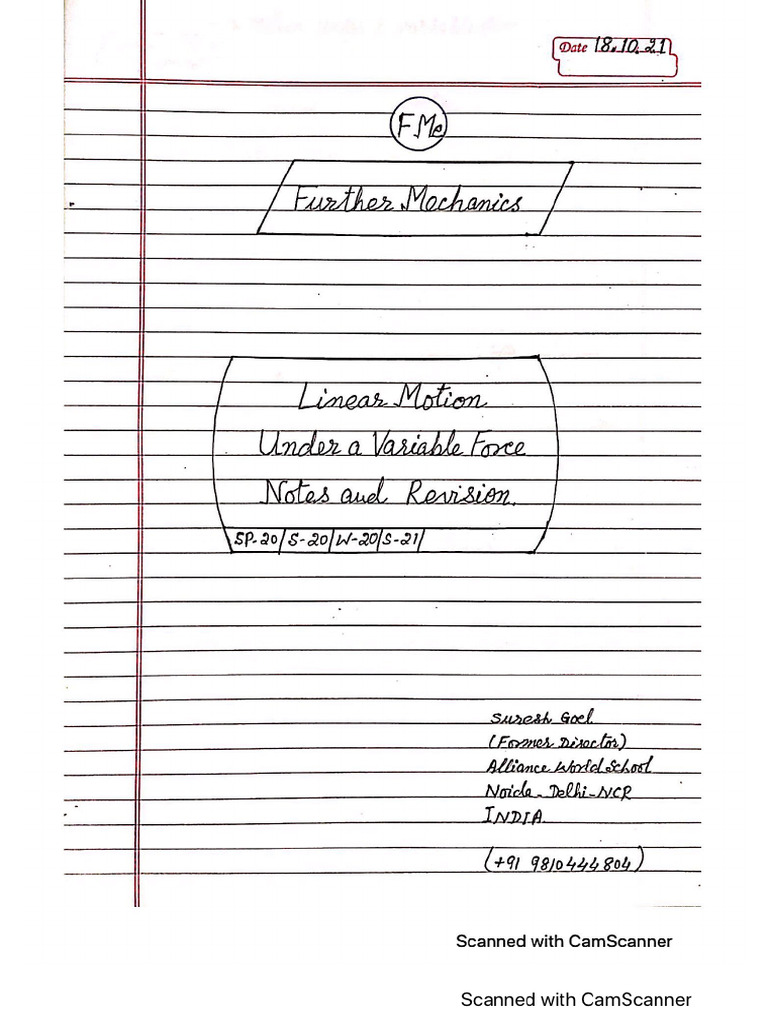 Date 18.10.21
F.Me
Further Mechanics
Linear Motion
Under a Variable Force
Notes and Revision.
SP-20/S-20/W-20/S-21/
Suresh Goel
(Former Director)
Alliance World School
Noida-Delhi-NCR
INDIA
(+91 9810444804)
Scanned with CamScanner
Scanned with CamScanner